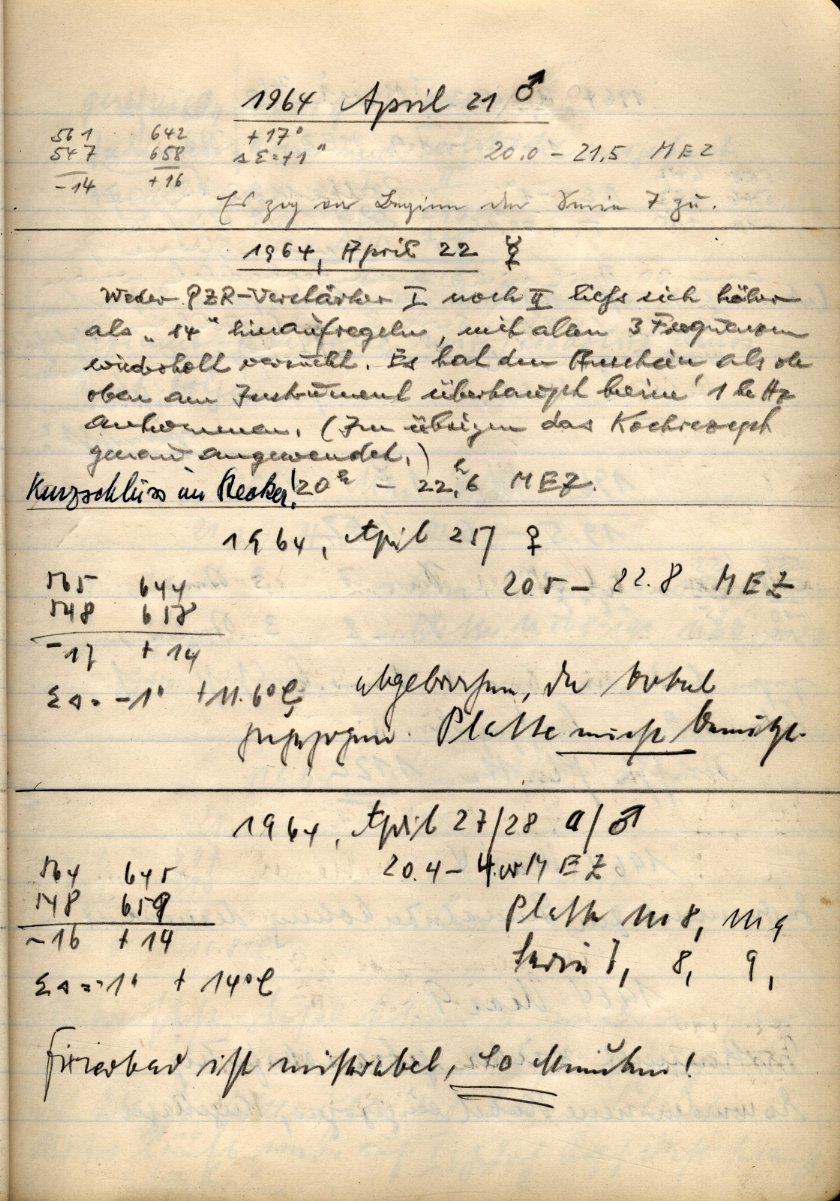 1964 April 21 ♂
561 642 +17°
547 658 ΔΣ=+1" 20,0 – 21,5 MEZ
-14 +16
Es zog vor Beginn der Serie 7 zu.
1964, April 22 ☿
Weder PZR-Verstärker I noch II liess sich höher
als "14" hinaufregeln, mit allen 3 Frequenzen
wiederholt versucht. Es hat den Anschein als ob
oben am Instrument überhaupt keine 1 kHz
ankommen. (Im übrigen das Kochrezept
genau angewendet.)
Kurzschluss im Stecker! 20h – 22h,6 MEZ.
1964, April 25/ ♀
565 644 205 – 22.8 MEZ
548 658
-17 +14
ΣΔ= -1° +11.6°C abgebrochen, da total
zugezogen. Platte nicht benützt.
1964, April 27/28 ☾/♂
564 645 20.4 – 4. MEZ
548 659
-16 +14 Platte 8, 9
ΣΔ=-1° +14°C Serie 7, 8, 9,
Fixierbad ist miserabel, 40 Minuten!